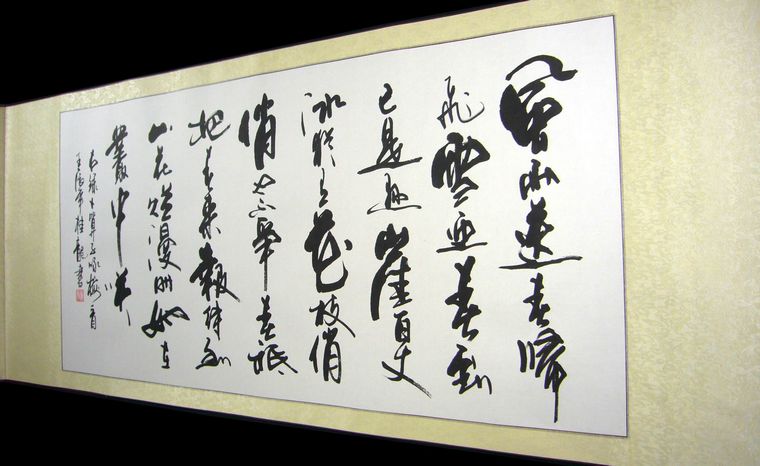 風雨送春歸
飛雪迎春到
已是懸崖百丈
冰猶有花枝俏
俏也不争春祇
把春来報待到
山花爛漫時她在
叢中笑
卜算子咏梅
桂龍書